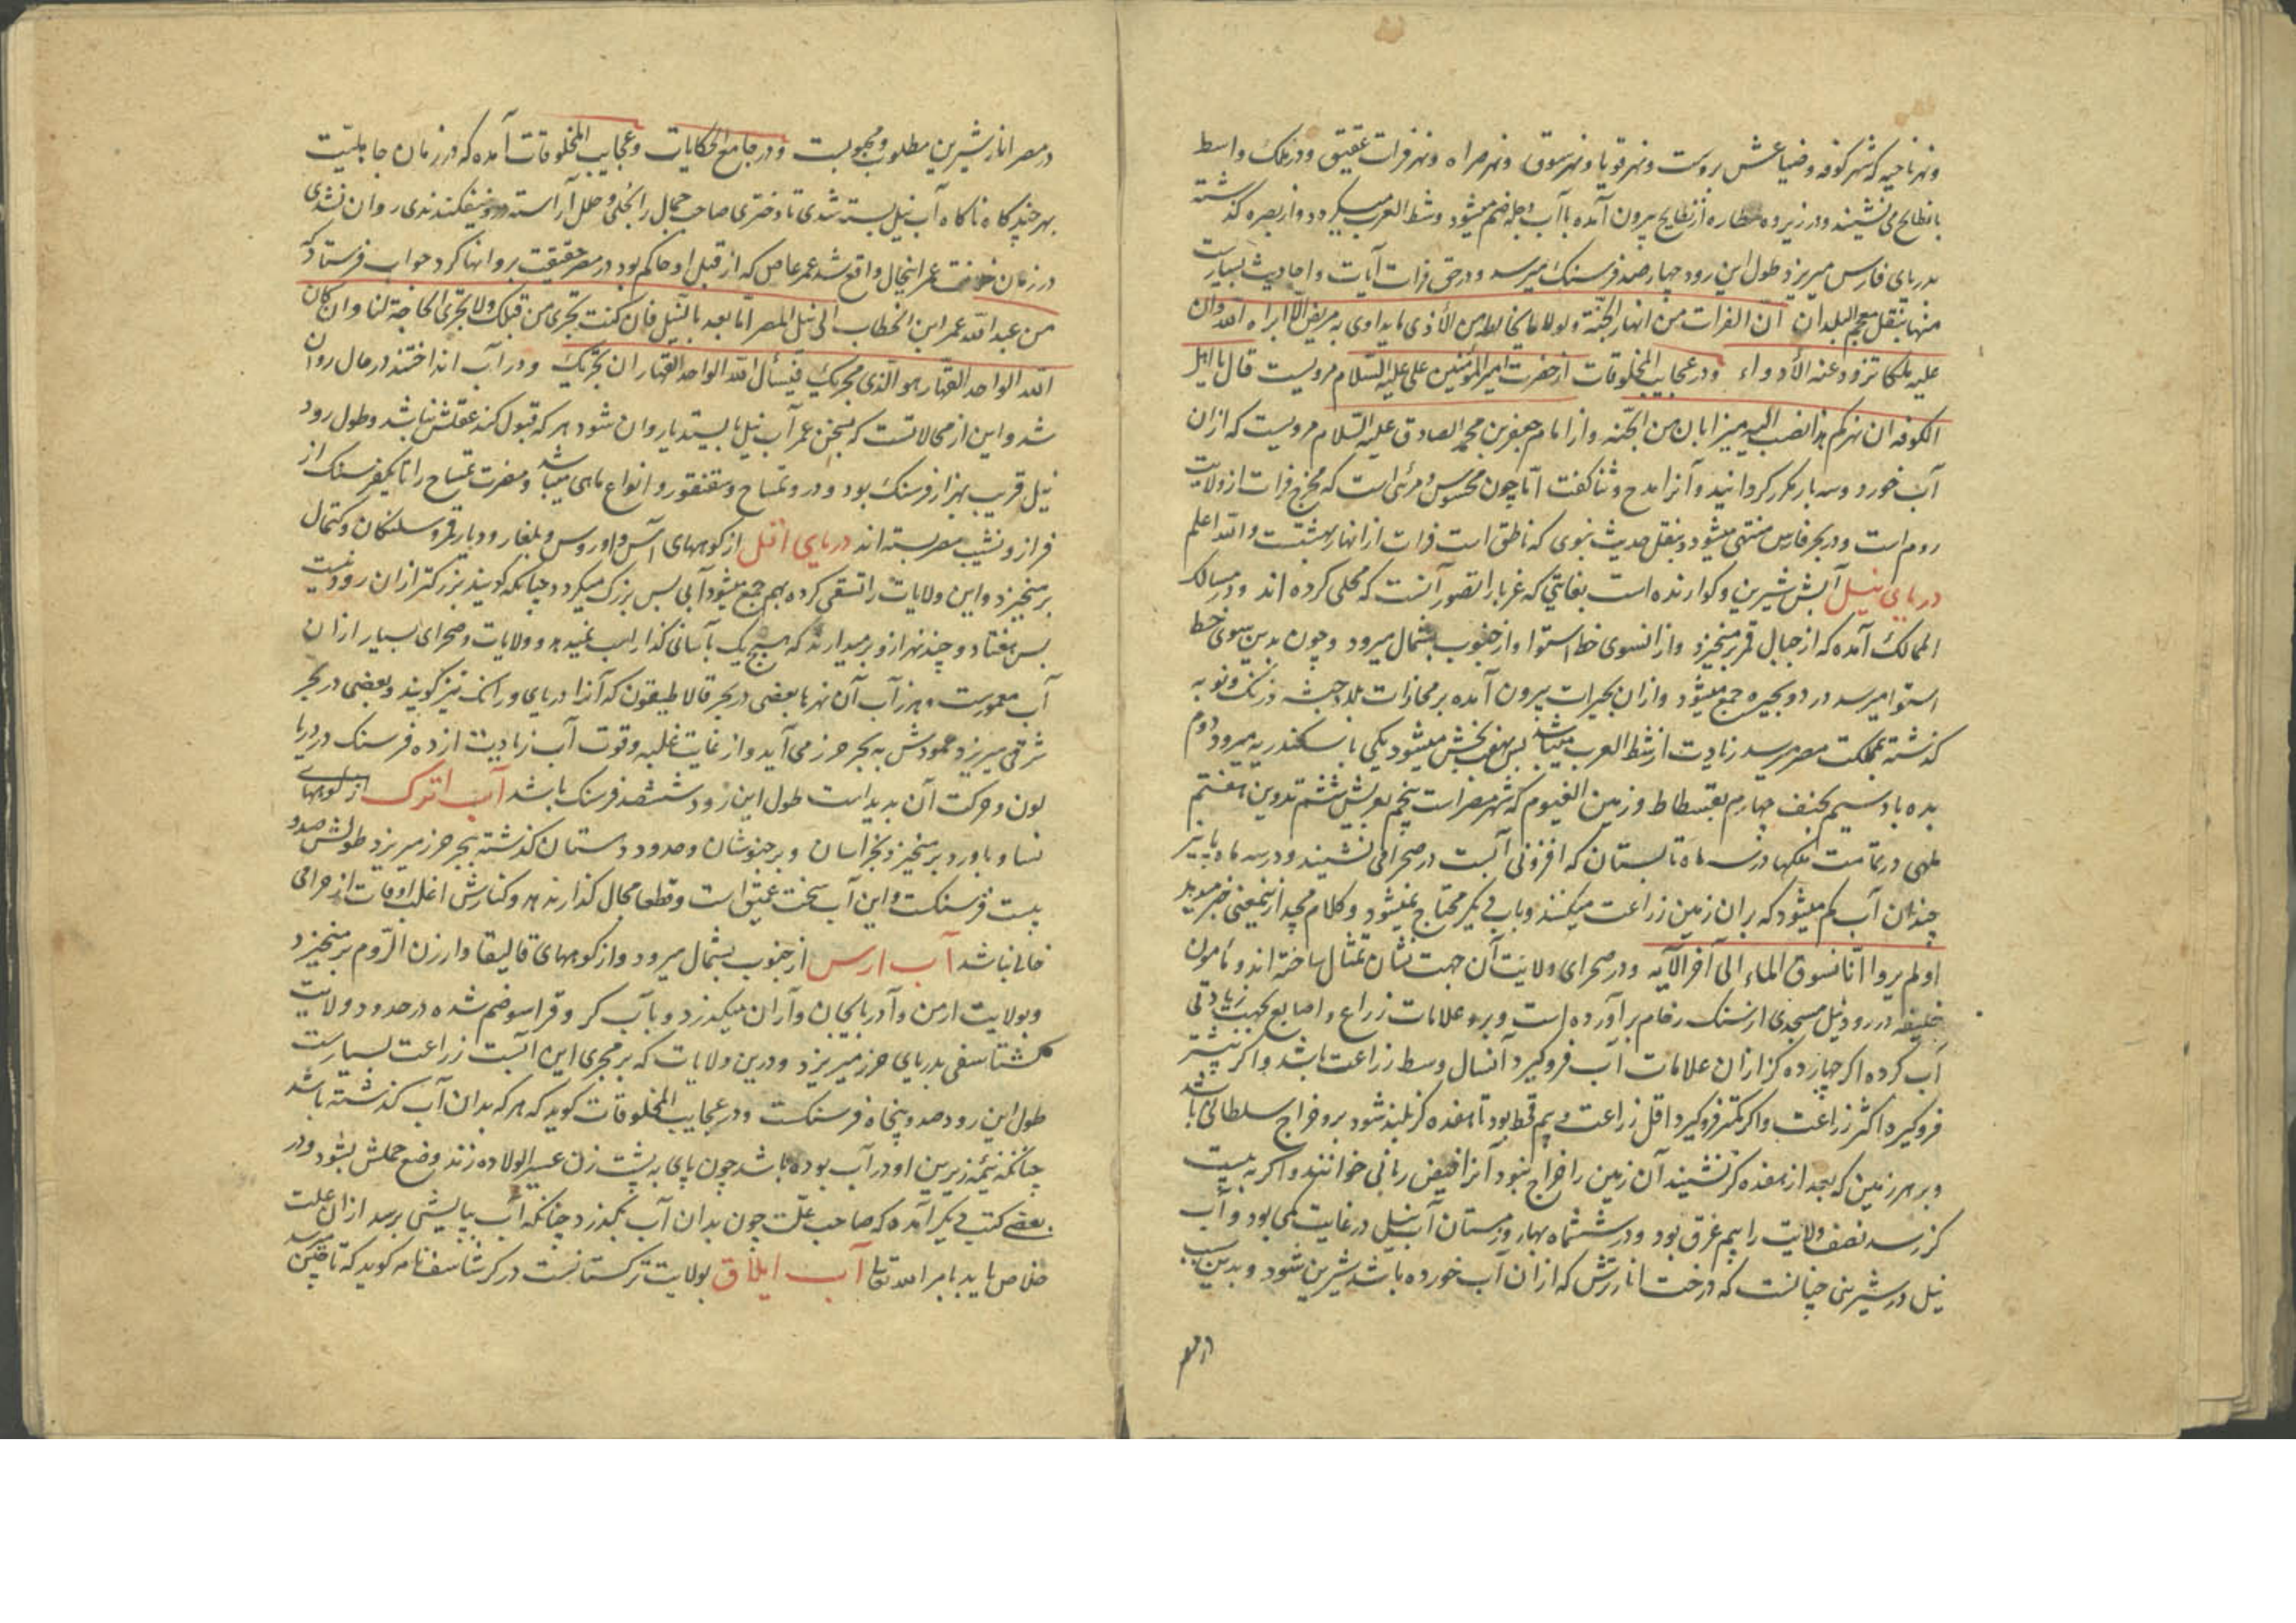 ونهر ناحیه که شهر کوفه وضیاعش بروست ونهر قویا ونهر سوق ونهر صراه ونهر فرات عتیق ودر ملک واسط
بابطایح می نشیند ودر زیر ده مطاره از بطایح بیرون آمده باآب دجله ضم میشود وشط العرب میگردد واز بصره گذشته
بدریای فارس میریزد طول این رود چهارصد فرسنک میرسد ودر حق فرات آیات واحادیث بسیارست
منها بنقل معجم البلدان ان الفرات من انهار الجنّة ولولا ما یخالطه من الأذی ما یداوی به مریض الّا ابراه الله وان
علیه ملکا تزود عنه الأدواء ودر عجایب المخلوقات از حضرت امیر المؤمنین علی علیه السّلام مرویست قال یا اهل
الکوفه ان نهرکم هذا یصب الیه میزابان من الجنّه واز امام جعفر بن محمد الصادق علیه السّلام مرویست که ازان
آب خورد وسه بار مکرر گردانید وآنرا مدح وثنا گفت امّا چون محسوس ومرئی است که مخرج فرات از ولایت
روم است ودر بحر فارس منتهی میشود ونقل حدیث نبوی که ناطق است فرات از انهار بهشتست والله اعلم
دریای نیل آبش شیرین وکوارنده است بغایتی که غربا را تصور آنست که محلی کرده اند ودر مسالک
الممالک آمده که از جبال قمر برمیخیزد وازانسوی خط استوا واز جنوب بشمال میرود وچون بدین سوی خط
استوا میرسد در دو بحیره جمع میشود وازان بحیرات بیرون آمده بر محازات بلاد حبشه وزنک ونوبه
گذشته بمملکت مصر میرسد زیادت از شط العرب میباشد پس بهفت بخش میشود یکی باسکندریه میرود دوم
بدمیاط سیم بمنف چهارم بفسطاط وزمین الفیوم که شهر مصر است پنجم بعریش ششم هفتم
در تمامت ملکها در سه ماه تابستان که افزونی آبست در صحرا می نشیند ودر سه ماه پاییز
چندان آب کم میشود که بران زمین زراعت میکنند وباب دیگر محتاج نمیشود وکلام مجید ازینمعنی خبر میدهد
اولم یروا انّا نسوق الماء الی آخر الآیه ودر صحرای ولایت آن جهت نشان تمثال ساخته اند ومأمون
خلیفه در رود نیل مسجدی از سنک رخام برآورده است وبرو علامات زراع واصابع بجهت زیادتی
آب کرده اگر چهارده گز ازان علامات آب فروگیرد آنسال وسط زراعت باشد واگر بیشتر
فروگیرد اکثر زراعت واگر کمتر فروگیرد اقل زراعت وبیم قحط بود تا هفده گز بلند شود برو خراج سلطانی باشد
وبر هر زمین که بعد از هفده گز نشیند آن زمین را خراج نبود آنرا فیض ربانی خوانند واگر به بیست
گز رسد نصف ولایت را بیم غرق بود ودر ششماه بهار وزمستان آب نیل در غایت کمی بود وآب
نیل در شیرینی چنانست که درخت انار ترش که ازان آب خورده باشد شیرین شود وبدین سبب
در مصر انار شیرین مطلوب ومحبوبست ودر جامع الحکایات وعجایب المخلوقات آمده که در زمان جاهلیّت
بهر چند گاه ناگاه آب نیل بسته شدی تا دختری صاحب جمال را بحلی وحلل آراسته درو نیفکندندی روان نشدی
در زمان خلافت عمر اینحال واقع شد عمر عاص که از قبل او حاکم بود در مصر حقیقت برو انها کرد جواب فرستاد که
من عبد الله عمر ابن الخطاب الی نیل المصر امّا بعد یا نیل فان کنت تجری من قبلک ولا تجری لا حاجة لنا وان کان
الله الواحد القهّار هو الّذی مجریک فنسأل الله الواحد القهّار ان یجریک ودر آب انداختند در حال روان
شد واین از محالاتست که بسخن عمر آب نیل بایستد یا روان شود هر که قبول کند عقلش نباشد وطول رود
نیل قریب بهزار فرسنک بود ودرو تمساح وسقنقور وانواع ماهی میباشد ومضرت تمساح را تا یکفرسنک از
فراز ونشیب مصر بسته اند دریای اتل از کوههای آس واوروس وبلغار ودیار قرو سلنکان وکتمال
برمیخیزد واین ولایات را تسقی کرده بهم جمع میشود آبی بس بزرک میگردد چنانکه گویند بزرکتر ازان رود نیست
پس هفتاد وچند نهر ازو برمیدارند که هیچ یک بآسانی گذار اسب نمیدهد وولایات وصحرای بسیار ازان
آب معمورست وهرز آب آن نهرها بعضی در بحر قالاطیقون که آنرا دریای ورانک نیز گویند وبعضی در بحر
شرقی میریزد وعمودش به بحر خزر می آید واز غایت غلبه وقوت آب زیادت از ده فرسنک در دریا
لون وحرکت آن پدید است طول این رود ششصد فرسنک باشد آب اترک از کوههای
نسا وباورد برمیخیزد بخراسان وبر خبوشان وحدود دهستان گذشته ببحر خزر میریزد طولش صد و
بیست فرسنکست واین آب سخت عمیق است وقطعا مجال گذار ندهد وکنارش اغلب اوقات از حرامی
خالی نباشد آب ارس از جنوب بشمال میرود واز کوههای قالیقلا وارزن الرّوم برمیخیزد
وبولایت ارمن وآذربایجان وآران میگذرد وبآب کر وقراسو ضم شده در حدود ولایت
گشتاسفی بدریای خزر میریزد ودرین ولایات که بر مجری این آبست زراعت بسیارست
طول این رود صد وپنجاه فرسنکست ودر عجایب المخلوقات گوید که هر که بدان آب گذشته باشد
چنانکه نیمه زیرین او در آب بوده باشد چون پای به پشت زن عسیر الولاده زند وضع حملش بشود ودر
بعضی کتب دیگر آمده که صاحب علّت چون بدان آب بگذرد چنانکه آب بپایش برسد ازان علت
خلاص یابد بامر الله تعالی آب ایلاق بولایت ترکستانست در کرشاسف نامه گوید که تا چین میرسد